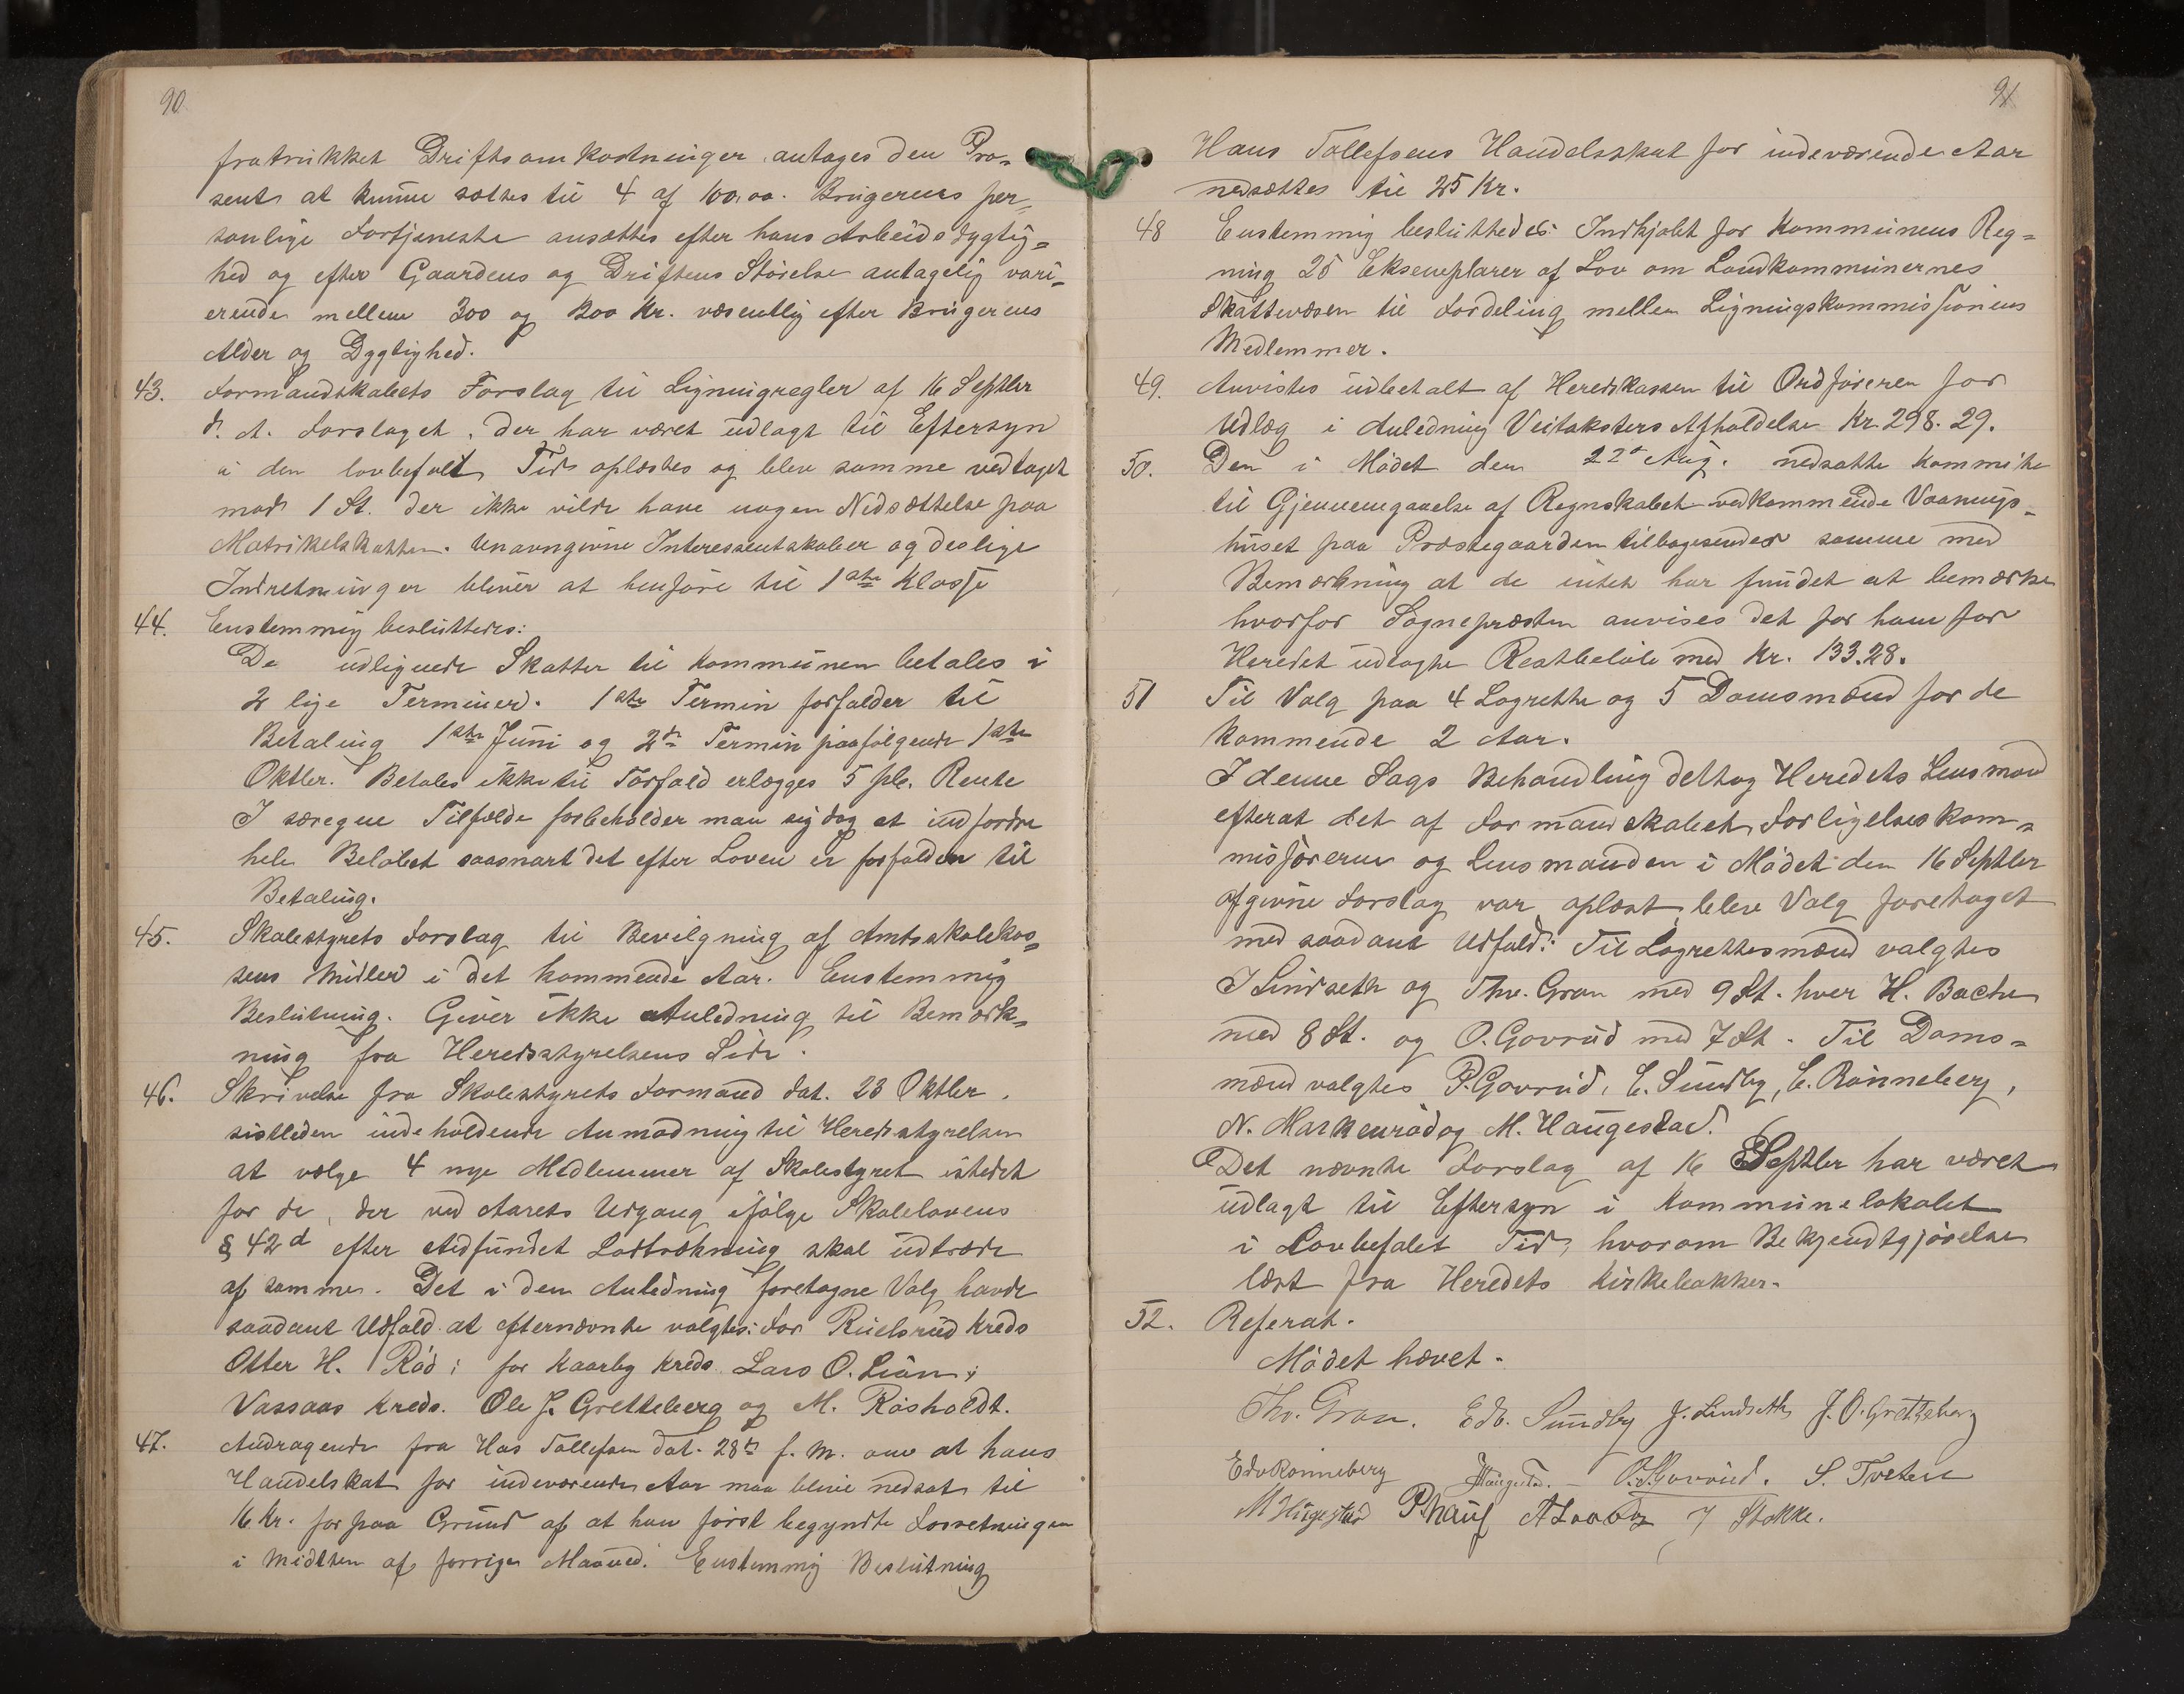 90
fratrukket Driftsomkostninger antages den Pro-
sent at kunne sættes til 4 af 100,00. Brugerens per-
sonlige Fortjeneste ansættes efter hans Arbeidsdygtig-
hed og efter Gaardens og Driftens Störelse antagelig vari-
erende mellem 300 og 1200 Kr. væsentlig efter Brugerens
Alder og Dygtighed.
43. Formandskabets Forslag til Ligningregler af 16 Septbr
d. A. Forslaget, der har været udlagt til Eftersyn
i den lovbefalt Tid oplæstes og blev samme vedtaget
mod 1 St. der ikke vilde have nogen Nedsættelse paa
Matrikelskatten. Unavngivne Interessentskaber og deslige
Indretninger bliver at henföre til 1ste Klasse
44. Enstemmig besluttedes:
De udlignede Skatter til Kommunen betales i
2 lige Terminer. 1ste Termin forfalder til
Betaling 1ste Juni og 2den Termin paafölgende 1ste
Oktbr. Betales ikke til Forfald erlægges 5 pct. Rente
I særegne Tilfælde forbeholder man sig dog at indfordre
hele Belöbet saasnart det efter Loven er forfalden til
Betaling.
45. Skolestyrets Forslag til Bevilgning af Amtsskolekas-
sens Midler i det kommende Aar. Enstemmig
Beslutning. Giver ikke Anledning til Bemærk-
ning fra Heredsstyrelsens Side.
46. Skrivelse fra Skolestyrets Formand dat. 23 Oktbr.
sistleden indeholdende Anmodning til Heredsstyrelsen
at vælge 4 nye Medlemmer af Skolestyret istedet
for de, der ved Aarets Udgang ifölge Skolelovens
§ 42 d efter stedfundet Lodtrækning skal udtræde
af samme. Det i den Anledning foretagne Valg havde
saadant Udfald at efternævnte valgtes: For Ruelsrud Kreds
Otter H. Röd; for Kaarby Kreds Lars O. Lian;
Vassaas Kreds. Ole J. Gretteberg og M. Rösholdt.
47. Andragende fra Has Tollefsen dat. 28de f. M. om at hans
Handelskat for indeværende Aar maa blive nedsat til
16 Kr. for paa Grund af at han först begyndte Forretningen
i Midten af forrige Maaned. Enstemmig Beslutning
91
Hans Tollefsens Handelsskat for indeværende Aar
nedsættes til 25 Kr.
48 Enstemmig besluttedes: Indkjöbt for Kommunens Reg-
ning 25 Eksemplarer af Lov om Landkommunernes
Skattevæsen til Fordeling mellem Ligningskommissionens
Medlemmer.
49. Anvistes udbetalt af Heredskassen til Ordföreren for
Udlæg i Anledning Veitaksters Afholdelse Kr. 298.29.
50. Den i Mödet den 22de Aug. nedsatte Kommite
til Gjennemgaaelse af Regnskabet vedkommende Vaanings-
huset paa Præstegaarden tilbagesender samme med
Bemærkning at de intet har fundet at bemærke
hvorfor Sognepræsten anvises det for ham for
Heredet udlagte Restbelöb med Kr. 133.28.
51 Til Valg paa 4 Lagrette og 5 Domsmænd for de
kommende 2 Aar.
I denne Sags Behandling deltog Heredets Lensmand
efterat det af Formandskabet Forligelseskom-
missörerne og Lensmanden i Mödet den 16 Septbr
afgivne Forslag var oplæst blev Valg foretaget
med saadant Udfald: Til Lagrettesmænd valgtes
J Lindseth og Thv. Gran med 9 St. hver H. Bache
med 8 St. og O. Govrud med 7 St. Til Doms-
mænd valgtes P. Govrud, E. Sundby, E. Rönneberg,
N. Markenröd og M. Haugestad.
Det nævnte Forslag af 16 Septbr har været
udlagt til Eftersyn i Kommunelokalet
i Lovbefalet Tid, hvorom Bekjendtgjörelse
læst fra Heredets Kirkebakker.
52. Referat.
Mödet hævet.
Thv. Gran. Edv. Sundby J. Lindseth J. O. Gretteberg
Edv Ronneberg O. Govrud. S. Tveten
M Hugestad J Stokke.